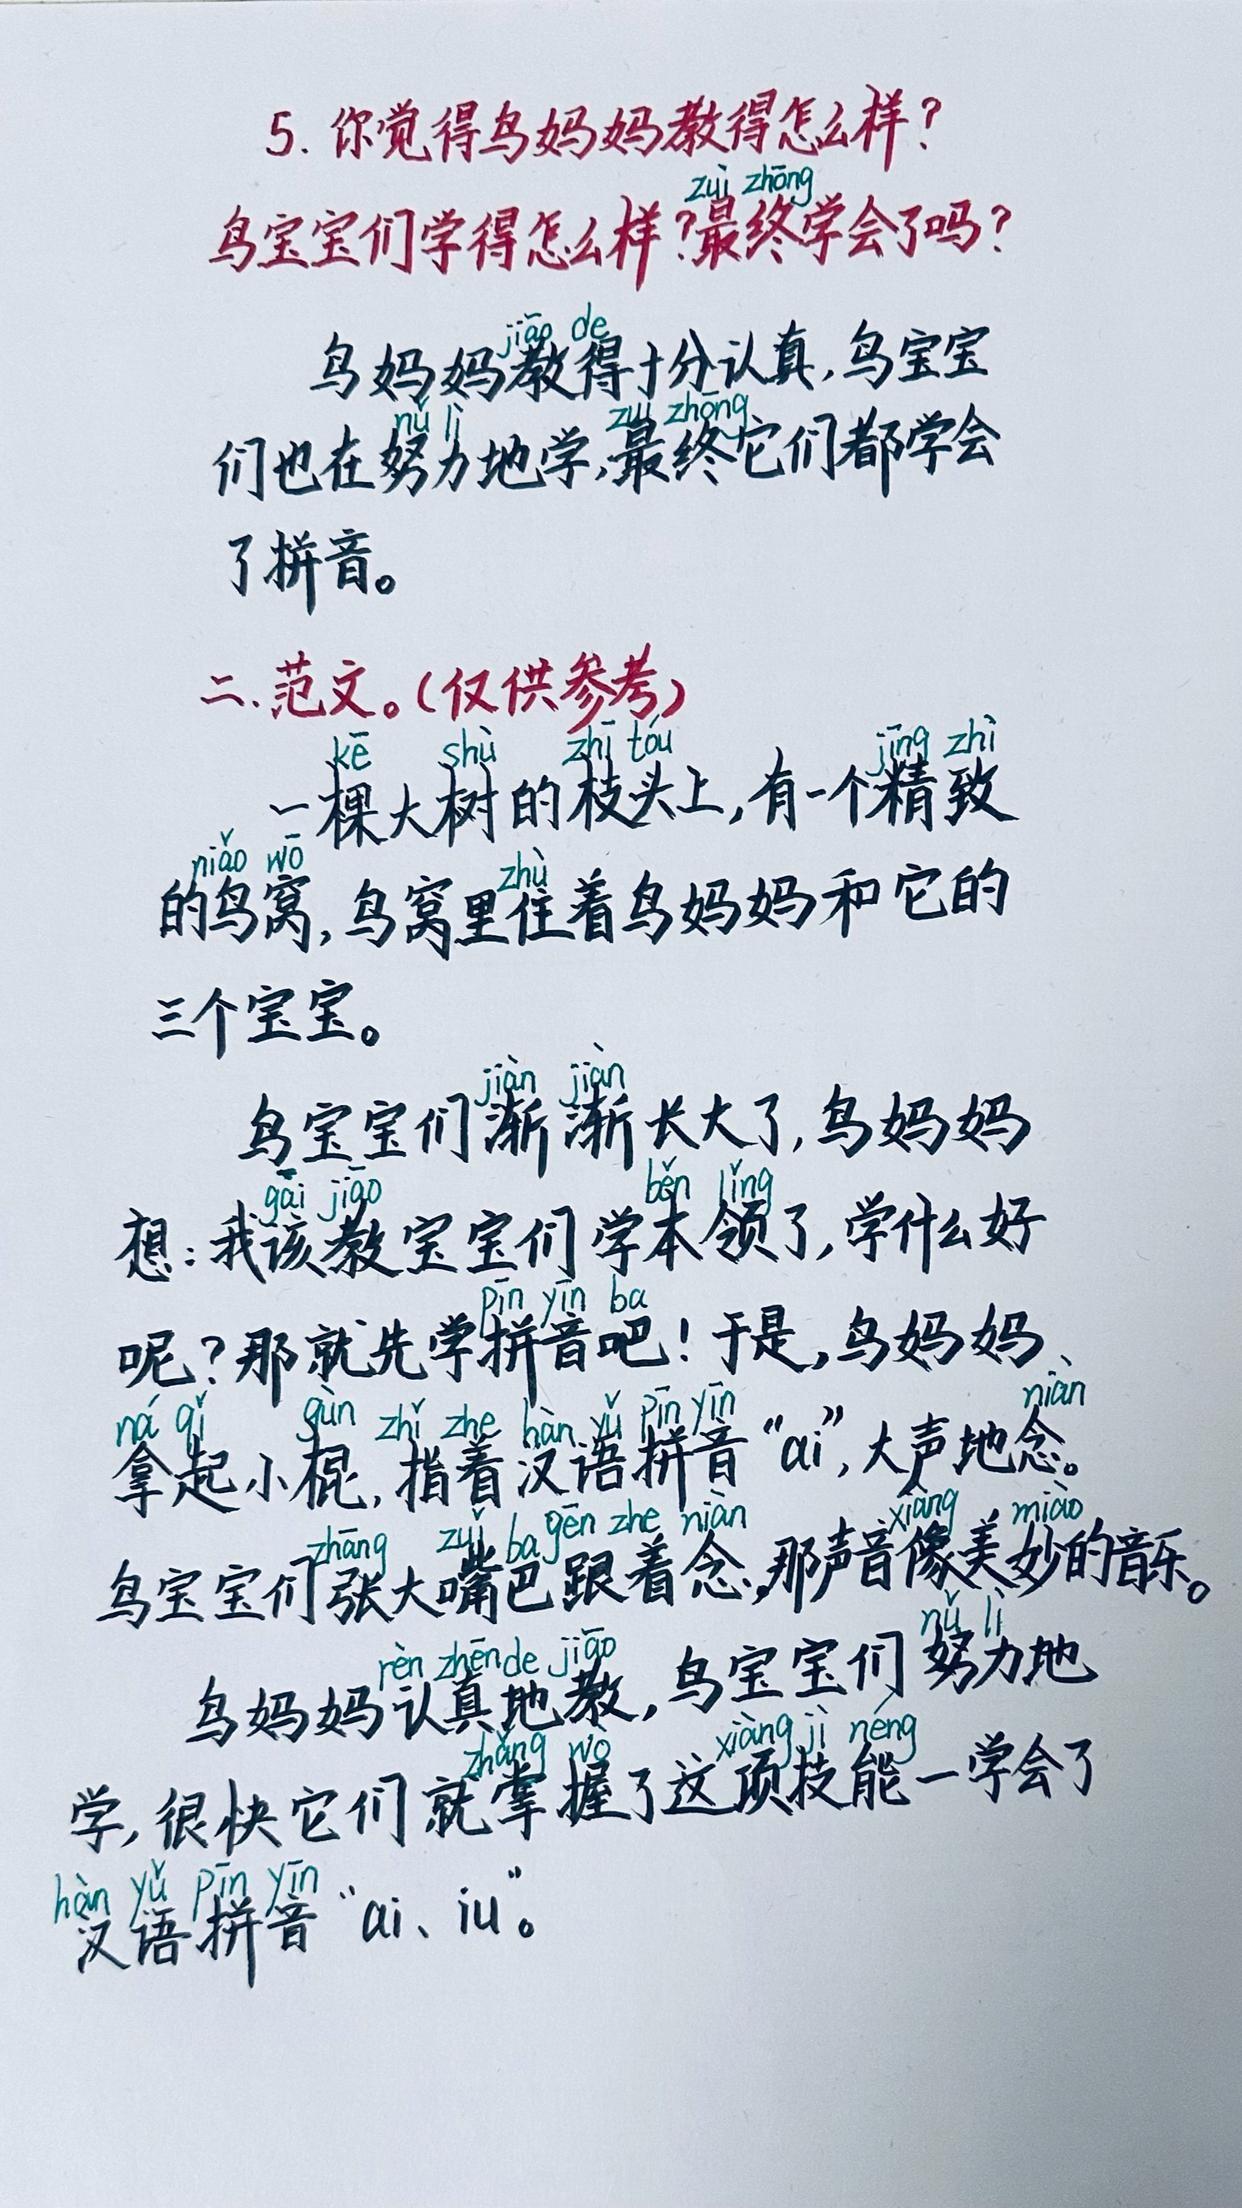 5. 你觉得鸟妈妈教得怎么样?
zuì zhōng
鸟宝宝们学得怎么样?最终学会了吗?
jiāo de
鸟妈妈教得十分认真,鸟宝宝
nǔ lì zuì zhōng
们也在努力地学,最终它们都学会
了拼音。
二.范文。(仅供参考)
kē shù zhī tóu jīng zhì
一棵大树的枝头上,有一个精致
niǎo wō zhù
的鸟窝,鸟窝里住着鸟妈妈和它的
三个宝宝。
jiàn jiàn
鸟宝宝们渐渐长大了,鸟妈妈
gāi jiāo běn lǐng
想:我该教宝宝们学本领了,学什么好
pīn yīn ba
呢?那就先学拼音吧!于是,鸟妈妈
ná qǐ gùn zhǐ zhe hàn yǔ pīn yīn niàn
拿起小棍,指着汉语拼音“ai”,大声地念。
zhāng zuǐ ba gēn zhe niàn xiàng miào
鸟宝宝们张大嘴巴跟着念,那声音像美妙的音乐。
rèn zhēn de jiāo nǔ lì
鸟妈妈认真地教,鸟宝宝们努力地
zhǎng wò xiàng jì néng
学,很快它们就掌握了这项技能一学会了
hàn yǔ pīn yīn
汉语拼音“ai、iu”。